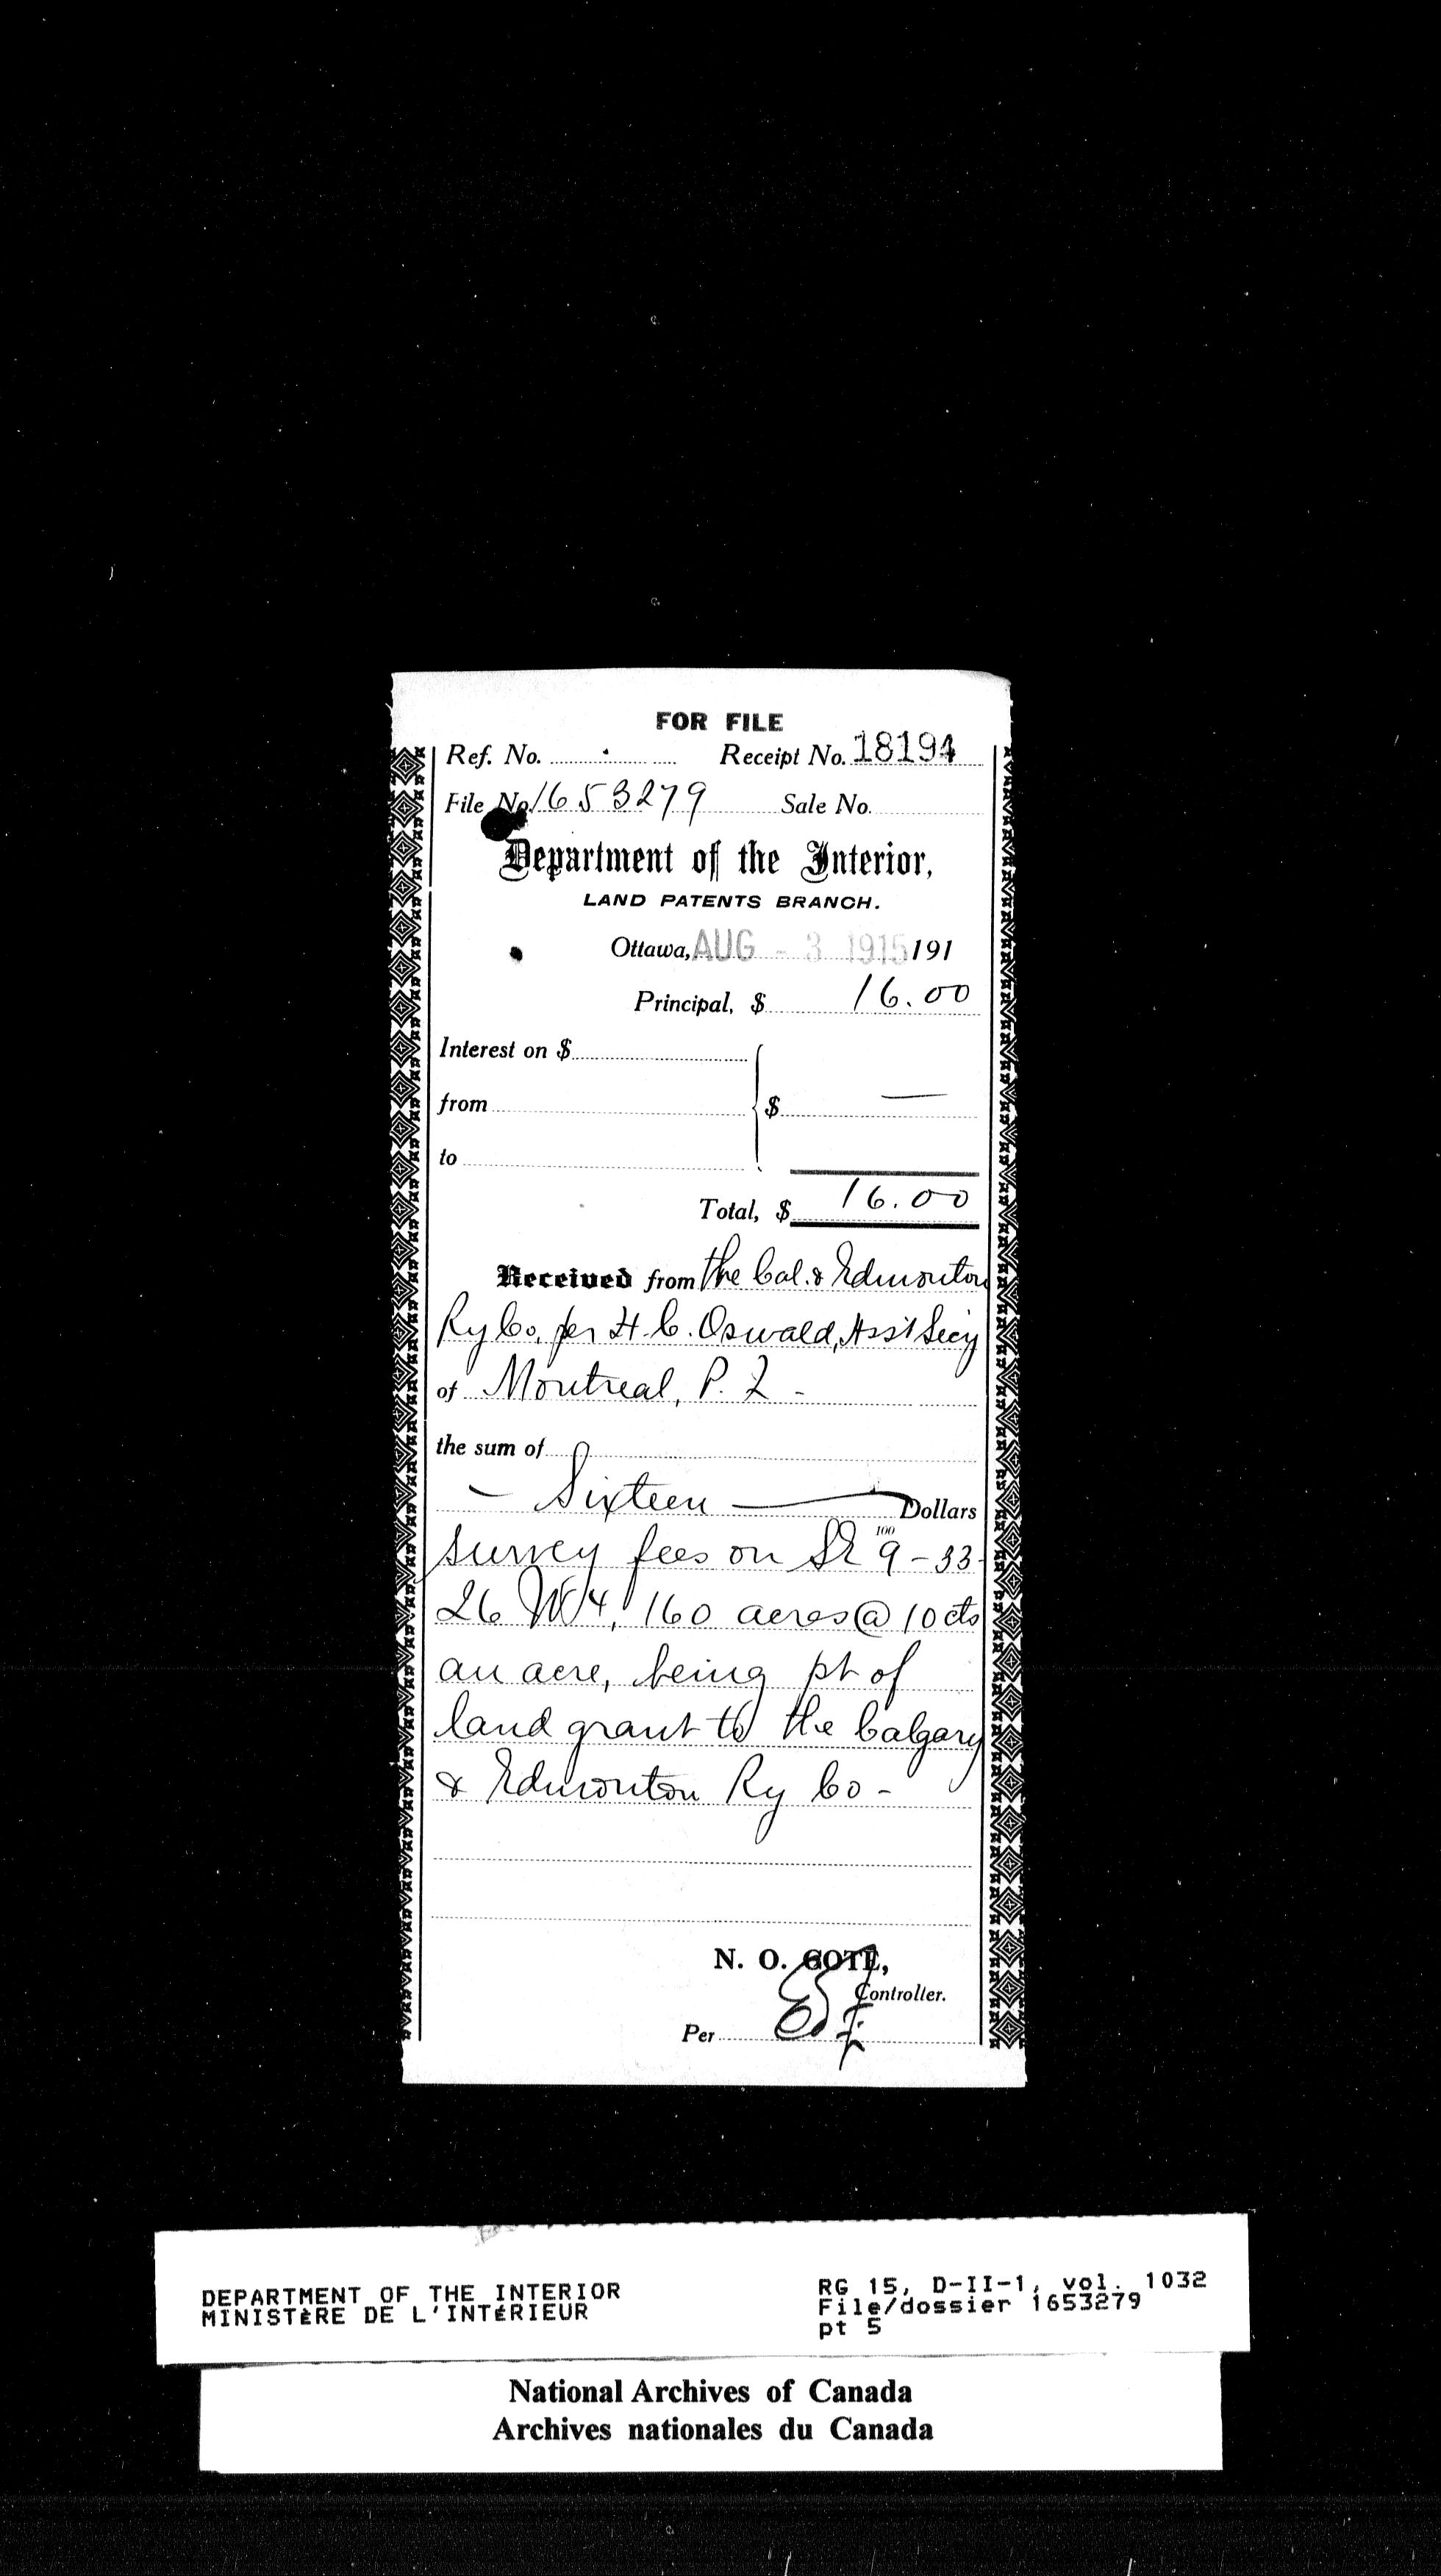 FOR FILE
Ref. No. Receipt No. 18194
File No. 1653279 Sale No.
Department of the Interior,
LAND PATENTS BRANCH.
Ottawa, AUG - 3 1915 191
Principal, $ 16.00
Interest on $
from $ —
to
Total, $ 16.00
Received from the Cal. & Edmonton
Ry Co, per H. C. Oswald, Ass't Secy
of Montreal, P. Q -
the sum of
- Sixteen — Dollars
100
survey fees on SE 9-33-
26 W4, 160 acres @ 10 cts
an acre, being pt of
land grant to the Calgary
& Edmonton Ry Co -
N. O. COTE,
Controller.
Per
DEPARTMENT OF THE INTERIOR
MINISTÈRE DE L'INTÉRIEUR
RG 15, D-II-1, vol. 1032
File/dossier 1653279
pt 5
National Archives of Canada
Archives nationales du Canada